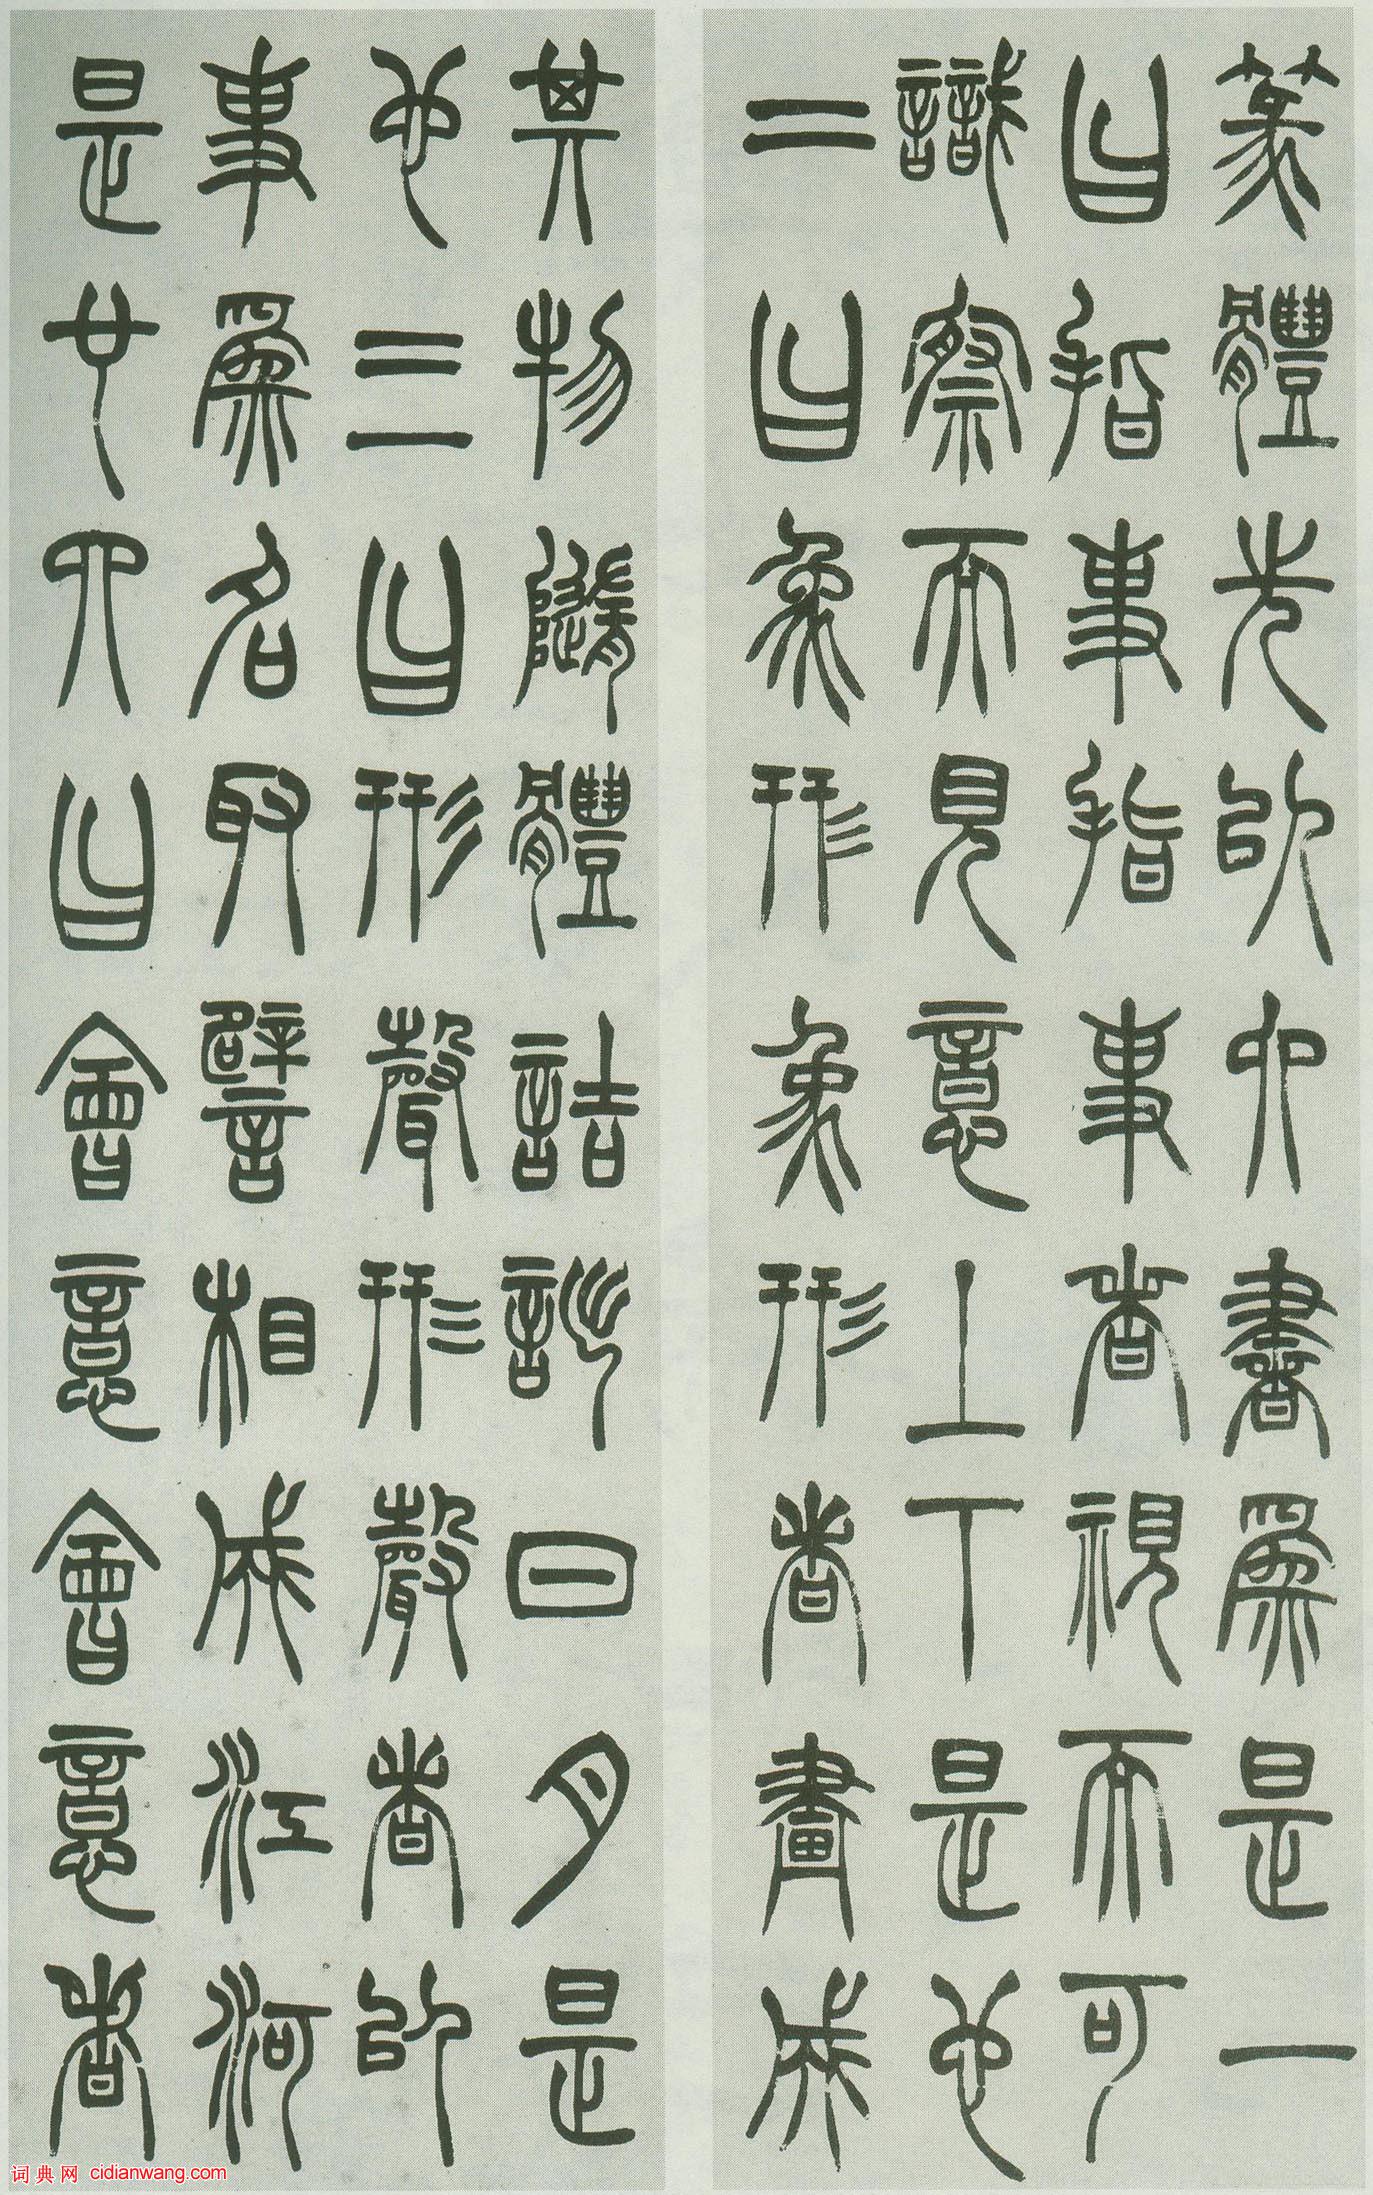 篆體先以六書爲是一
曰指事指事者視而可
識察而見意上下是也
二曰象形象形者畫成
其物隨體詰詘日月是
也三曰形聲形聲者以
事爲名取譬相成江河
是也四曰會意會意者
词典网 cidianwang.com